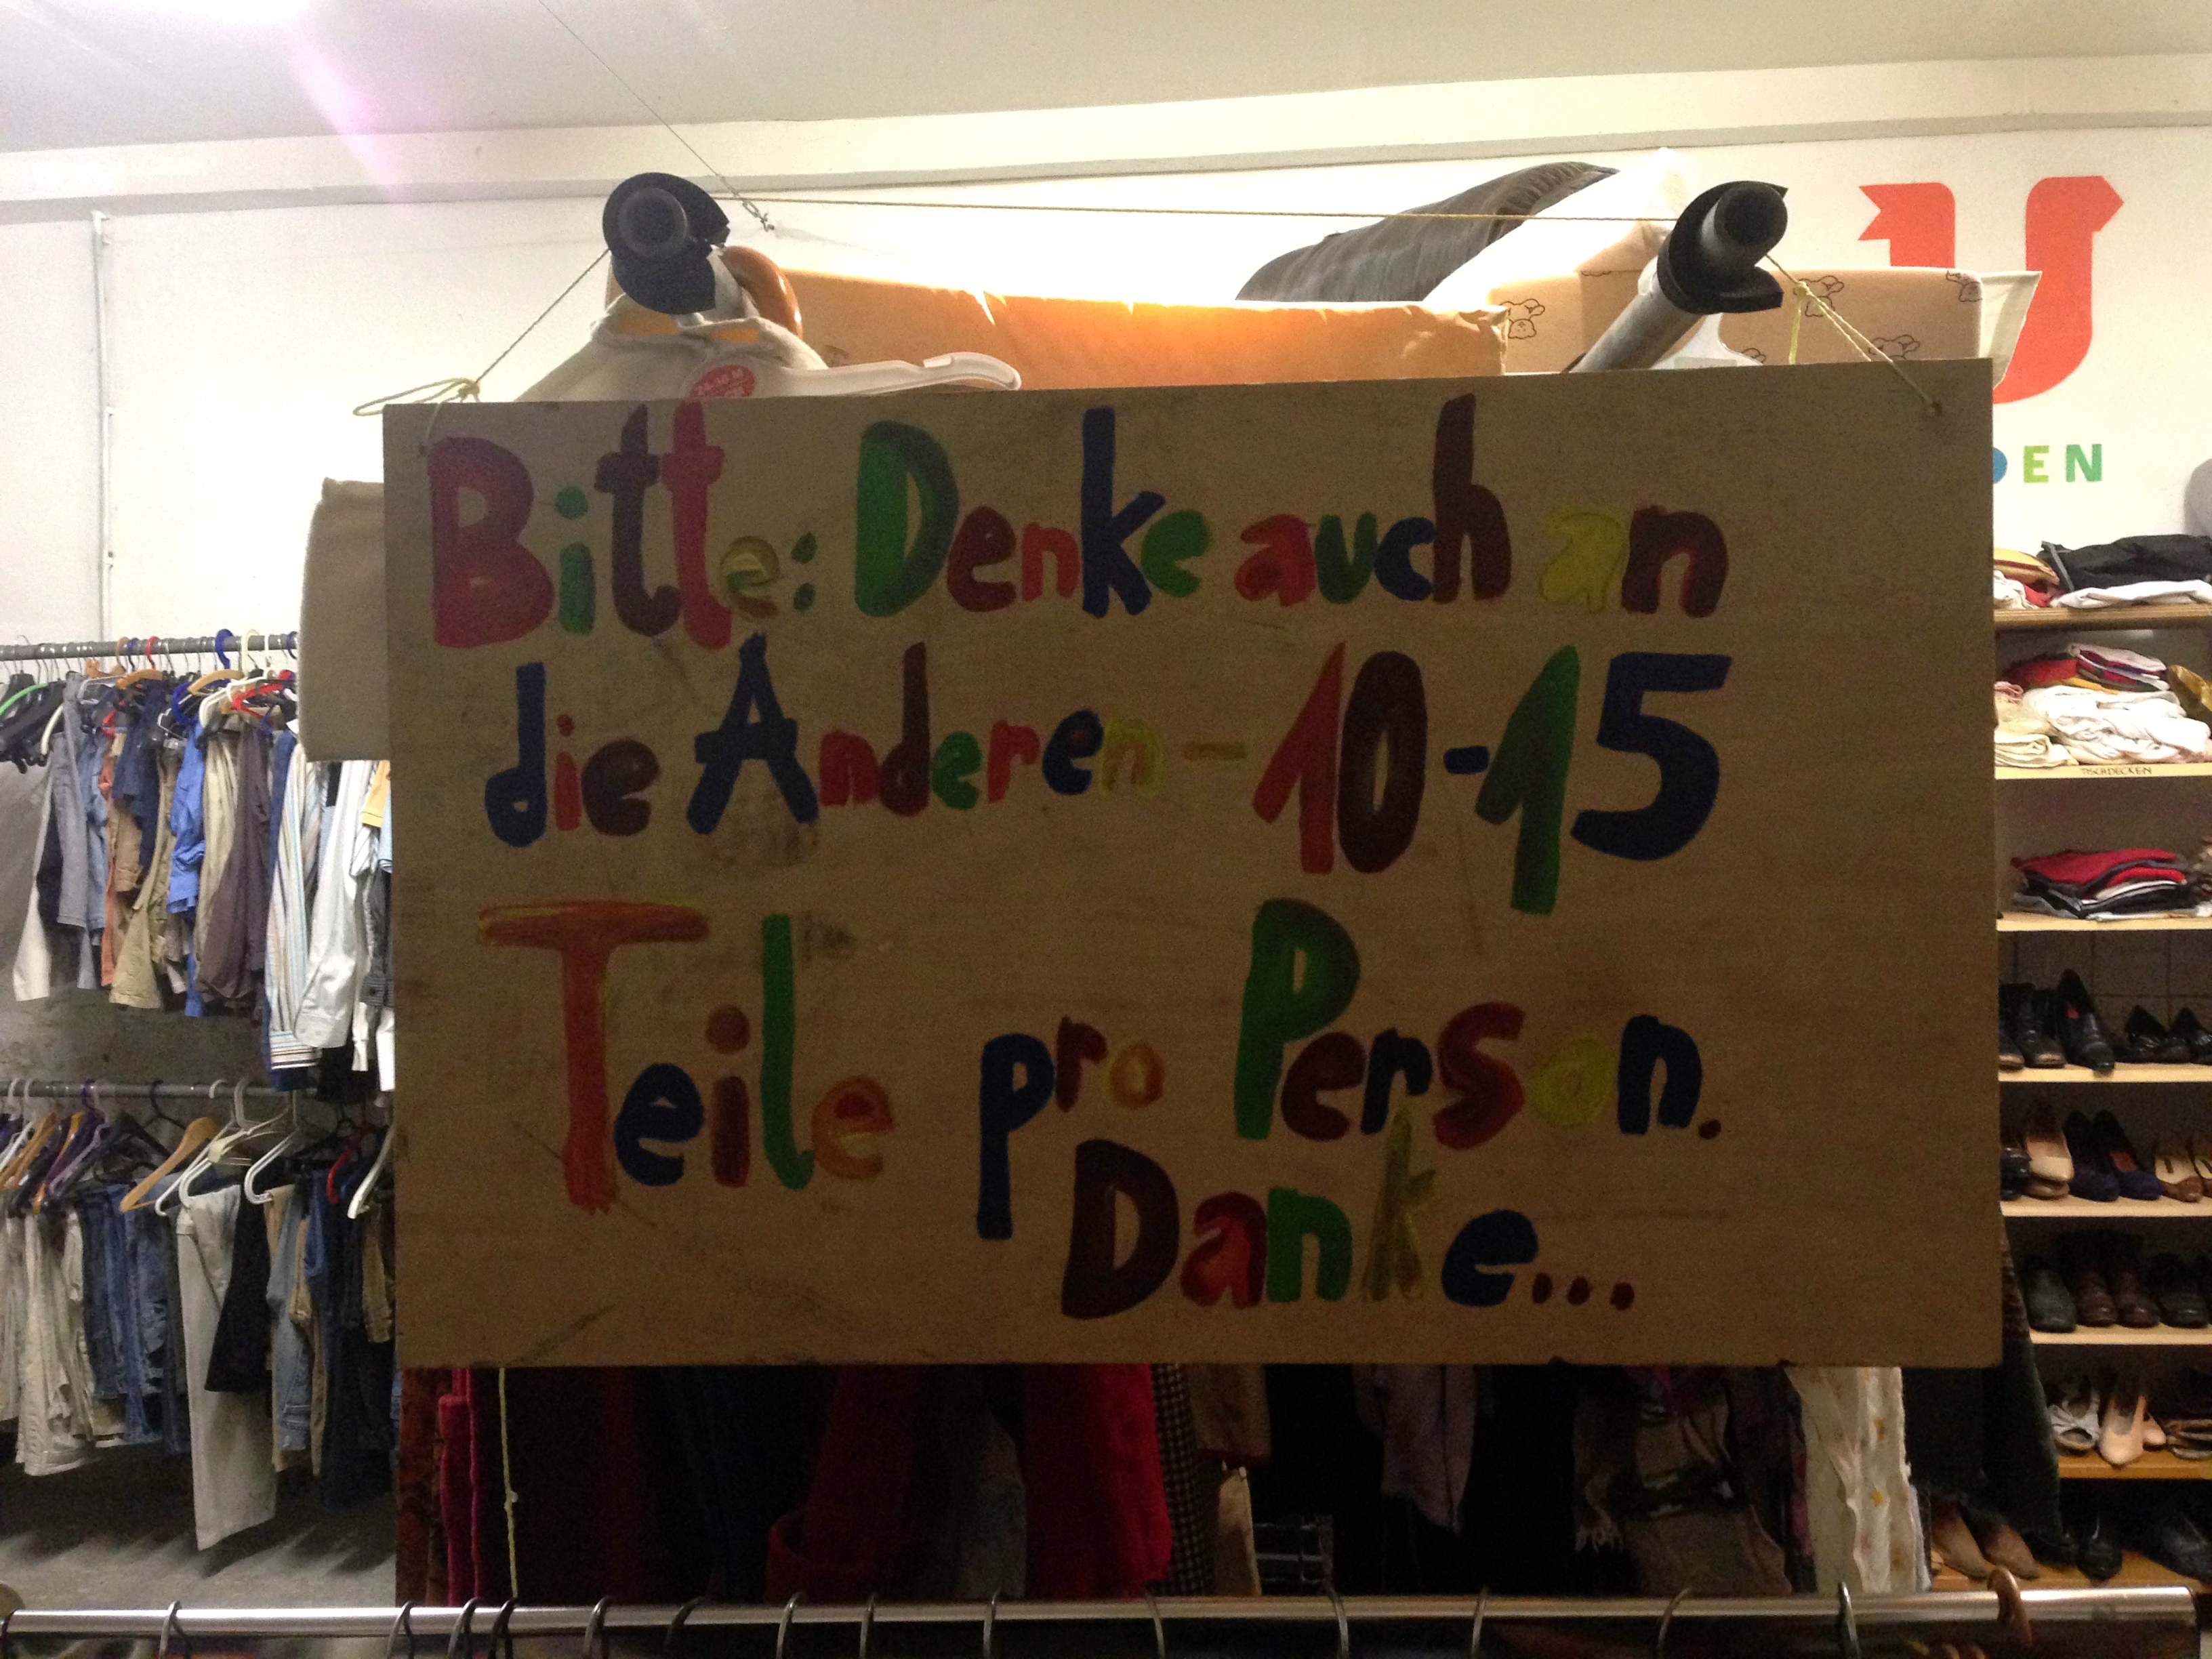 Bitte: Denke auch an
die Anderen - 10-15
Teile pro Person.
Danke...
DEN
TISCHDECKEN